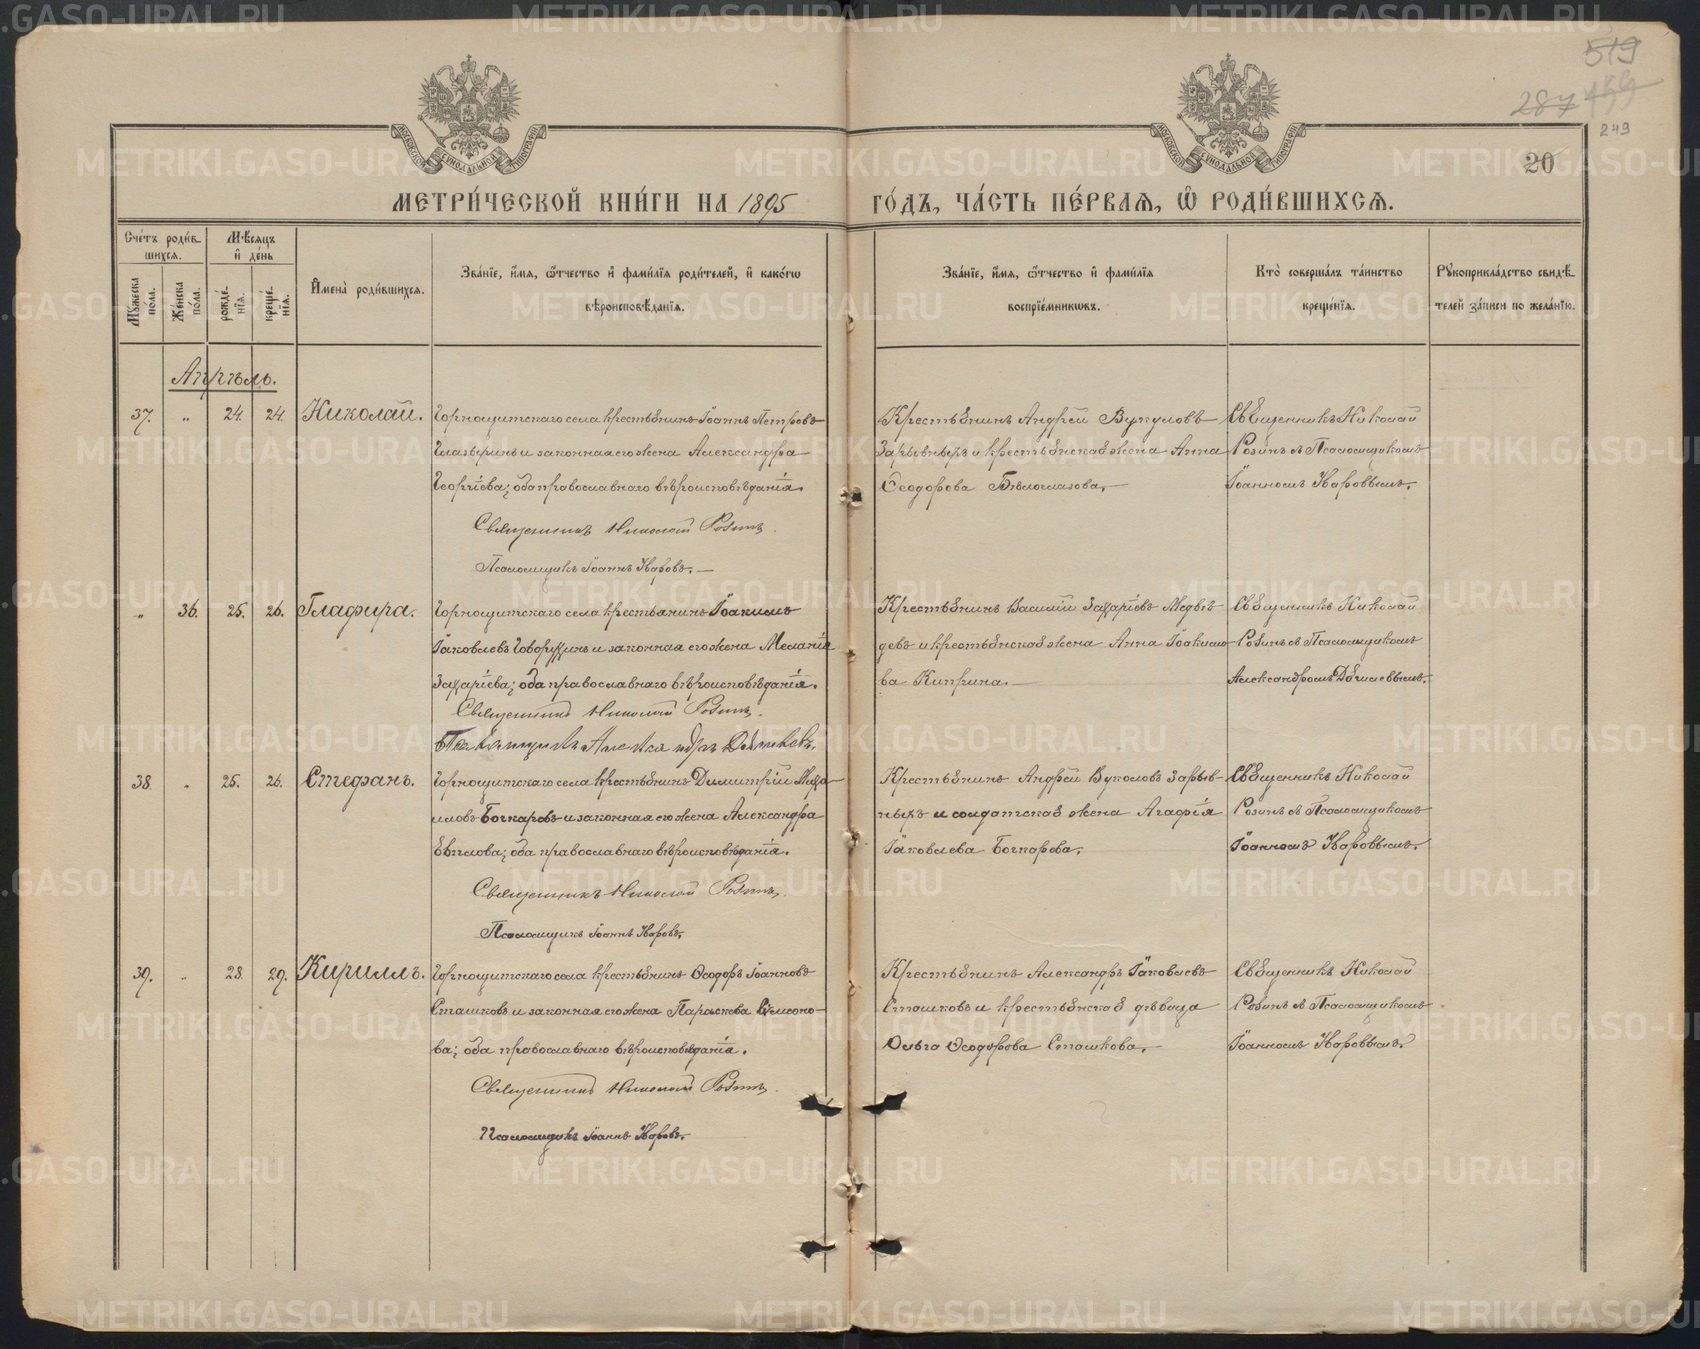 519
287 499
249
20
МОСКОВСКОЙ СѴНОДАЛЬНОЙ ТИПОГРАФІИ
МОСКОВСКОЙ СѴНОДАЛЬНОЙ ТИПОГРАФІИ
МЕТРИ́ЧЕСКОЙ КНИ́ГИ НА 1895 ГО́ДЪ, ЧА́СТЬ ПЕ́РВАѦ, Ѡ҆ РОДИ́ВШИХСѦ.
Сче́тъ роди́в-
шихсѧ.
Мꙋ́жеска по́ла.
Же́нска по́ла.
Мѣ́сѧцъ и҆ де́нь
рожде́-нїѧ.
креще́-нїѧ.
И҆мена̀ роди́вшихсѧ.
Зва́нїе, и҆́мѧ, ѻ҆́тчество и҆ фами́лїѧ роди́телей, и҆ како́гѡ
вѣроисповѣ́данїѧ.
Зва́нїе, и҆́мѧ, ѻ҆́тчество и҆ фами́лїѧ
воспрїе́мникѡвъ.
Кто̀ соверша́лъ та́инство
креще́нїѧ.
Рꙋкоприкла́дство свидѣ́-
телей за́писи по жела́нїю.
Апрѣль.
37. „ 24. 24. Николай. Горнощитскаго села крестьянинъ Іоаннъ Петровъ
Глазыринъ и законная его жена Александра
Георгіева; оба православнаго вѣроисповѣданія.
Священникъ Николай Розинъ.
Псаломщикъ Іоаннъ Кыровъ.
Крестьянинъ Андрей Вуколовъ
Зарывныхъ и крестьянская жена Анна
Ѳеодорова Бѣлоглазова.
Священникъ Николай
Розинъ съ Псаломщикомъ
Іоанномъ
„ 36. 25. 26. Глафира. Горнощитскаго села крестьянинъ Іоакимъ
Іаковлевъ Говорухинъ и законная его жена Меланія
Захаріева; оба православнаго вѣроисповѣданія.
Священникъ Николай Розинъ.
Крестьянинъ Василій Захаріевъ Медвѣ-
девъ и крестьянская жена Анна Іоакимо-
ва Киприна.
Священникъ Николай
Розинъ съ Псаломщикомъ
Александромъ
38. „ 25. 26. Стефанъ. Горнощитскаго села крестьянинъ Димитрій Миха-
иловъ Бочкаревъ и законная его жена Александра
оба православнаго вѣроисповѣданія.
Священникъ Николай Розинъ.
Псаломщикъ Іоаннъ
Крестьянинъ Андрей Вуколовъ Зарыв-
ныхъ и солдатская жена Агафія
Іаковлева Бочкарева.
Священникъ Николай
Розинъ съ Псаломщикомъ
Іоанномъ
39. „ 28. 29. Кириллъ. Горнощитскаго села крестьянинъ Ѳеодоръ Іоанновъ
Сташковъ и законная его жена Параскева Симоно-
ва; оба православнаго вѣроисповѣданія.
Священникъ Николай Розинъ.
Псаломщикъ Іоаннъ
Крестьянинъ Александръ Іаковлевъ
Сташковъ и крестьянская дѣвица
Ольга Ѳеодорова Сташкова.
Священникъ Николай
Розинъ съ Псаломщикомъ
Іоанномъ
METRIKI.GASO-URAL.RU